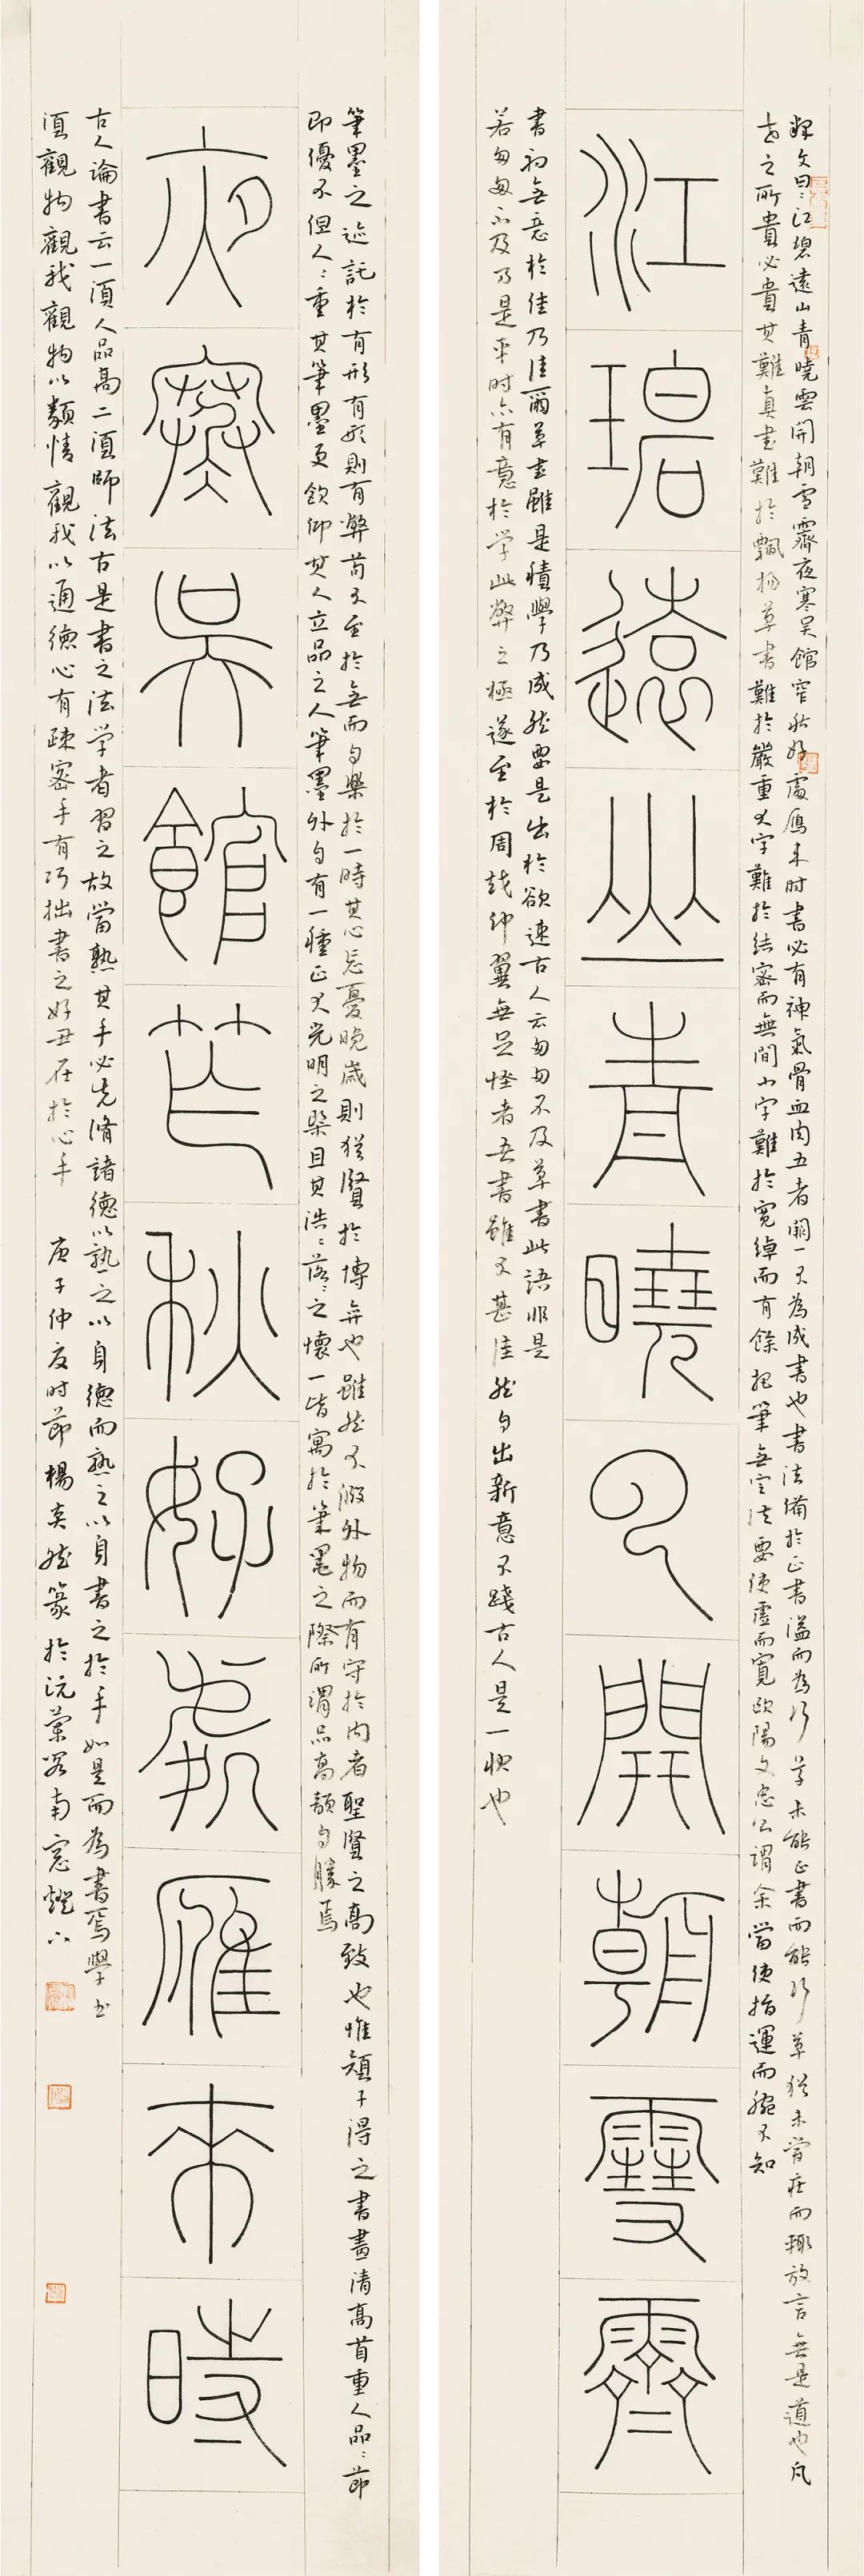 釋文曰江碧遠山青曉雲開朝雪霽夜寒吳館窄秋好處雁來時書必有神氣骨血肉五者闕一不為成書也書法備於正書溢而為行草未能正書而能行草猶未嘗莊而輒放言無是道也凡
世之所貴必貴其難真書難於飄揚草書難於嚴重大字難於結密而無間小字難於寬綽而有餘把筆無定法要使虛而寬歐陽文忠公謂余當使指運而腕不知
江碧遠山青曉雲開朝雪霽
書初無意於佳乃佳爾草書雖是積學乃成然要是出於欲速古人云匆匆不及草書此語非是
若匆匆不及乃是平時亦有意於学此弊之極遂至於周越仲翼無足怪者吾書雖不甚佳然自出新意不踐古人是一快也
筆墨之迹託於有形有形則有弊苟不至於無而自樂於一時其心忘憂晚歲則猶賢於博弈也雖然不假外物而有守於內者聖賢之高致也惟顏子得之書畫清高首重人品々節
即優不但人々重其筆墨更欽仰其人立品之人筆墨外自有一種正大光明之槩且其浩々落々之懷一皆寓於筆墨之際所謂品高韻自勝焉
夜寒吳館窄秋好處雁來時
古人論書云一須人品高二須師法古是書之法学者習之故當熟其手必先脩諸德以熟之以身德而熟之以身書之於手如是而為書焉學书
須觀物觀我觀物以類情觀我以通德心有疎密手有巧拙書之好丑在於心手 庚子仲夏时節楊奕然篆於沅蘭閣南窓燈下